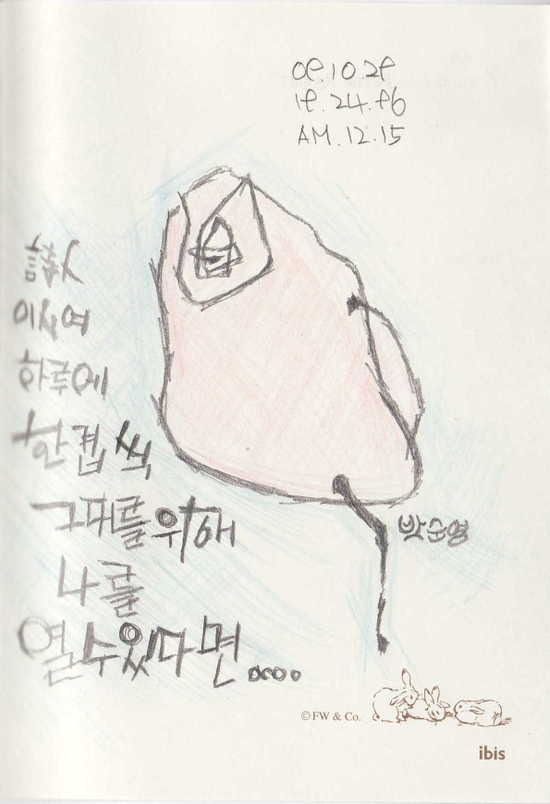 09.10.29
19.24.96
AM.12.15
詩人
이시여
하루에
한겹씩
그대를위해
나를
열수있다면....
박순영
©FW & Co.
ibis